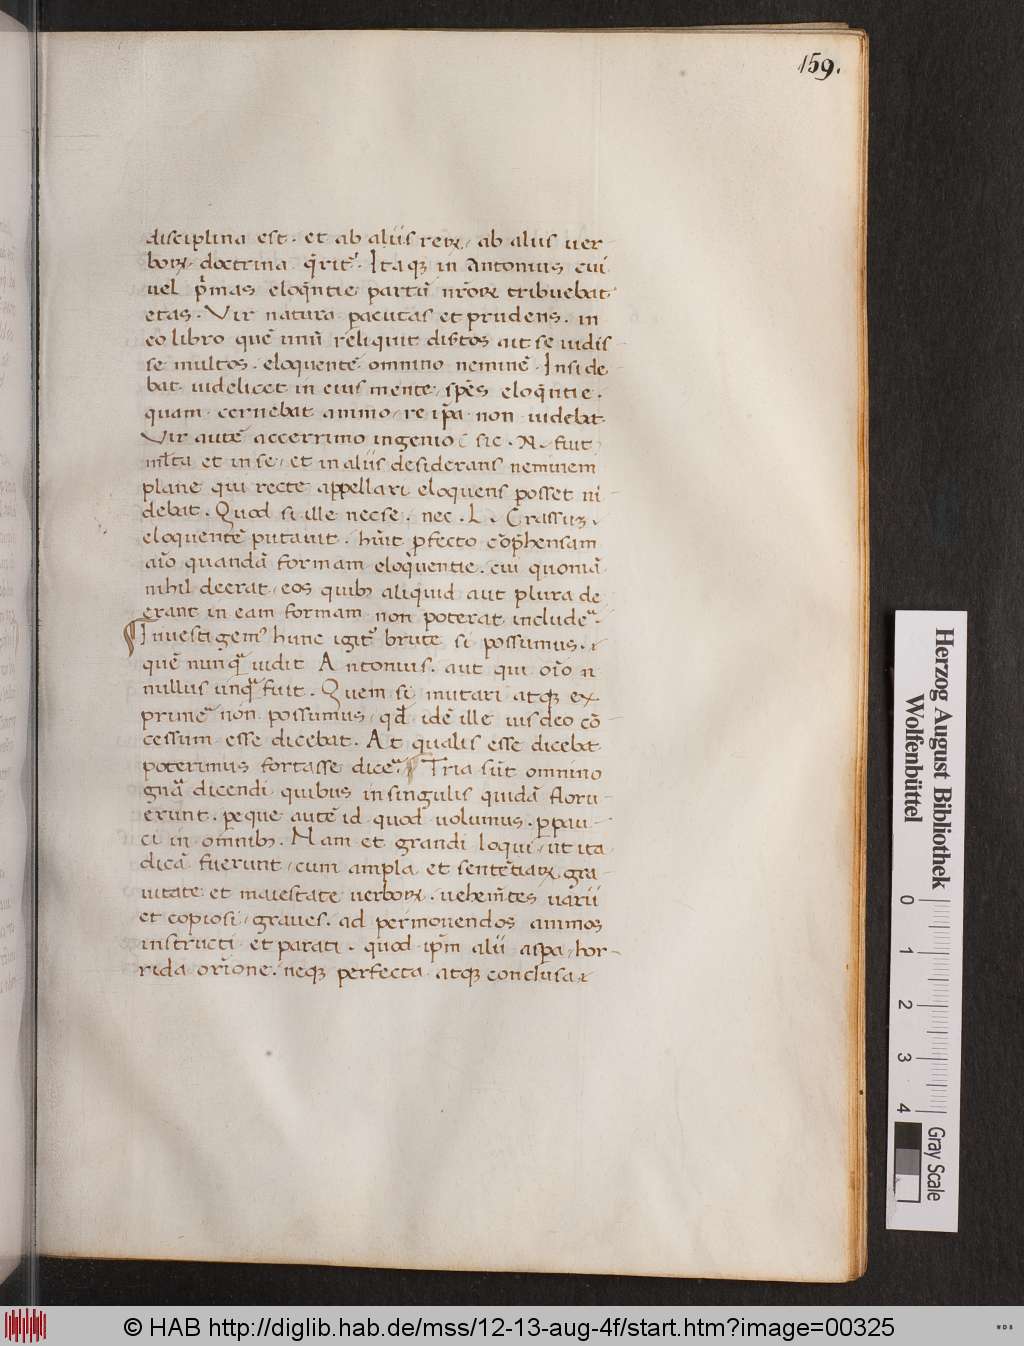 159.
disciplina est. et ab aliis reꝝ, ab aliis uer-
boꝝ doctrina q̈rit᷑. Itaq; in Antonius cui
uel p̈mas eloq̈ntie partū nr̄oꝝ tribuebat
etas. Vir natura peracutus et prudens. in
eo libro quē unū reliquit disertos ait se uidis-
se multos. eloquentē omnino neminē. Inside-
bat uidelicet in eius mente spēs eloq̈ntie.
quam cernebat animo, re ip̄a non uidebat.
Vir autē accerrimo ingenio sic .N. fuit
ml̄ta et in se, et in aliis desiderans neminem
plane qui recte appellari eloquens posset ui-
debat. Quod si ille nec se. nec .L. Crassum.
eloquentē putauit. hūit ꝑfecto cōp̄hensam
aīo quandā formam eloq̈uentie. cui quoniā
nihil deerat, eos quibꝫ aliquid aut plura de
erant in eam formam non poterat includeᷓ.
¶ Inuestigemꝰ hunc igit᷑ brute si possumus.
quē nunq̄ uidit Antonius. aut qui oīo n̄
nullus unq̄ fuit. Quem si imitari atq; ex
primeᷓ non possumus, qđ idē ille uis deo cō-
cessum esse dicebat. At qualis esse debeat
poterimus fortasse diceᷓ ¶ Tria sūt omnino
gn̄a dicendi quibus in singulis quidā floru-
erunt. peque autē id quod uolumus. ꝑpau-
ci in omnibꝫ. Nam et grandi loqui, ut ita
dicā fuerunt, cum ampla et sentētiaꝝ gra-
uitate et maiestate uerboꝝ. uehemētes uarii
et copiosi, graues. ad permouendos animos
instructi et parati. quod ip̄m alii aspa, hor-
rida orīone. neq; perfecta atq; conclusa
Herzog August Bibliothek
Wolfenbüttel
0 1 2 3 4
Gray Scale
© HAB http://diglib.hab.de/mss/12-13-aug-4f/start.htm?image=00325